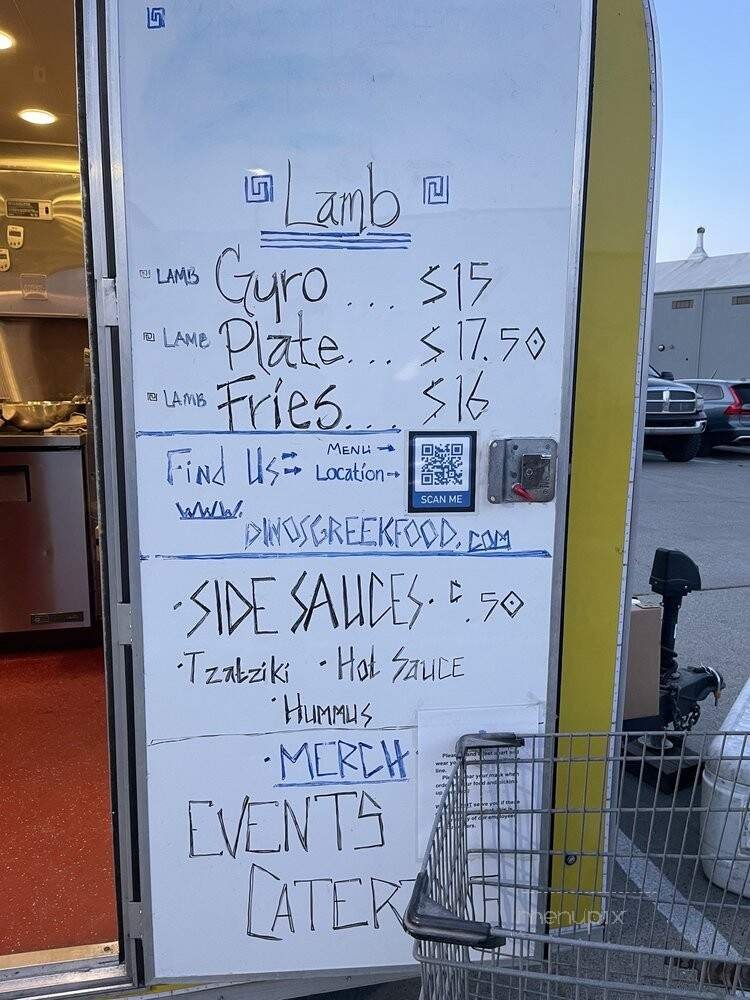 Lamb
LAMB Gyro ... $15
LAMB Plate... $17.50
LAMB Fries... $16
Find Us
Menu →
Location →
SCAN ME
WWW.
DINOSGREEKFOOD.COM
·SIDE SAUCES· ¢.50
·Tzatziki ·Hot Sauce
·Hummus
·MERCH
EVENTS
menupix